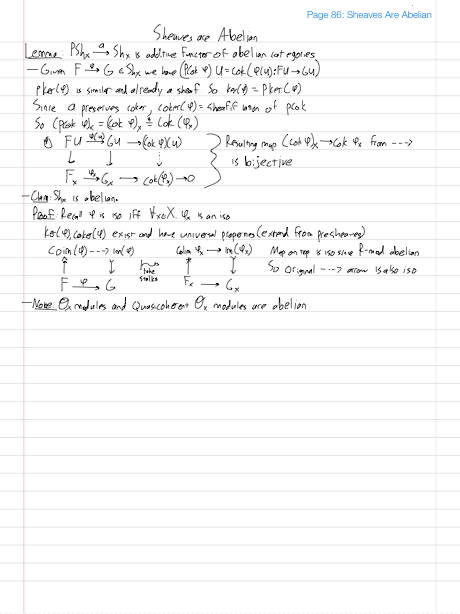 Page 86: Sheaves Are Abelian
Sheaves are Abelian
Lemma: PSh_X →^a Sh_X is additive functor of abelian categories
– Given F →^φ G ∈ Sh_X we have (PCok φ) U = Cok (φ(U): FU → GU)
Pker(φ) is similar and already a sheaf so ker(φ) = Pker(φ)
Since a preserves coker, coker(φ) = sheafification of pcok
So (Pcok φ)_x = (Cok φ)_x ≟ Cok (φ_x)
FU →^φ(U) GU → (Cok φ)(U)
↓ ↓ ⇣
F_x →^φ_x G_x → Cok(φ_x) → 0
Resulting map (Cok φ)_x → Cok φ_x from ⇢
is bijective
– Claim: Sh_X is abelian.
Proof: Recall φ is iso iff ∀x∈X φ_x is an iso
Ker(φ), Coker(φ) exist and have universal properties (extend from presheaves)
Coim(φ) ⇢ Im(φ)
↑ ↓
F →^φ G
take stalks
Coim φ_x → Im(φ_x)
↑ ↓
F_x → G_x
Map on top is iso since R-mod abelian
So Original ⇢ arrow is also iso
– Note: O_X modules and Quasicoherent O_X modules are abelian